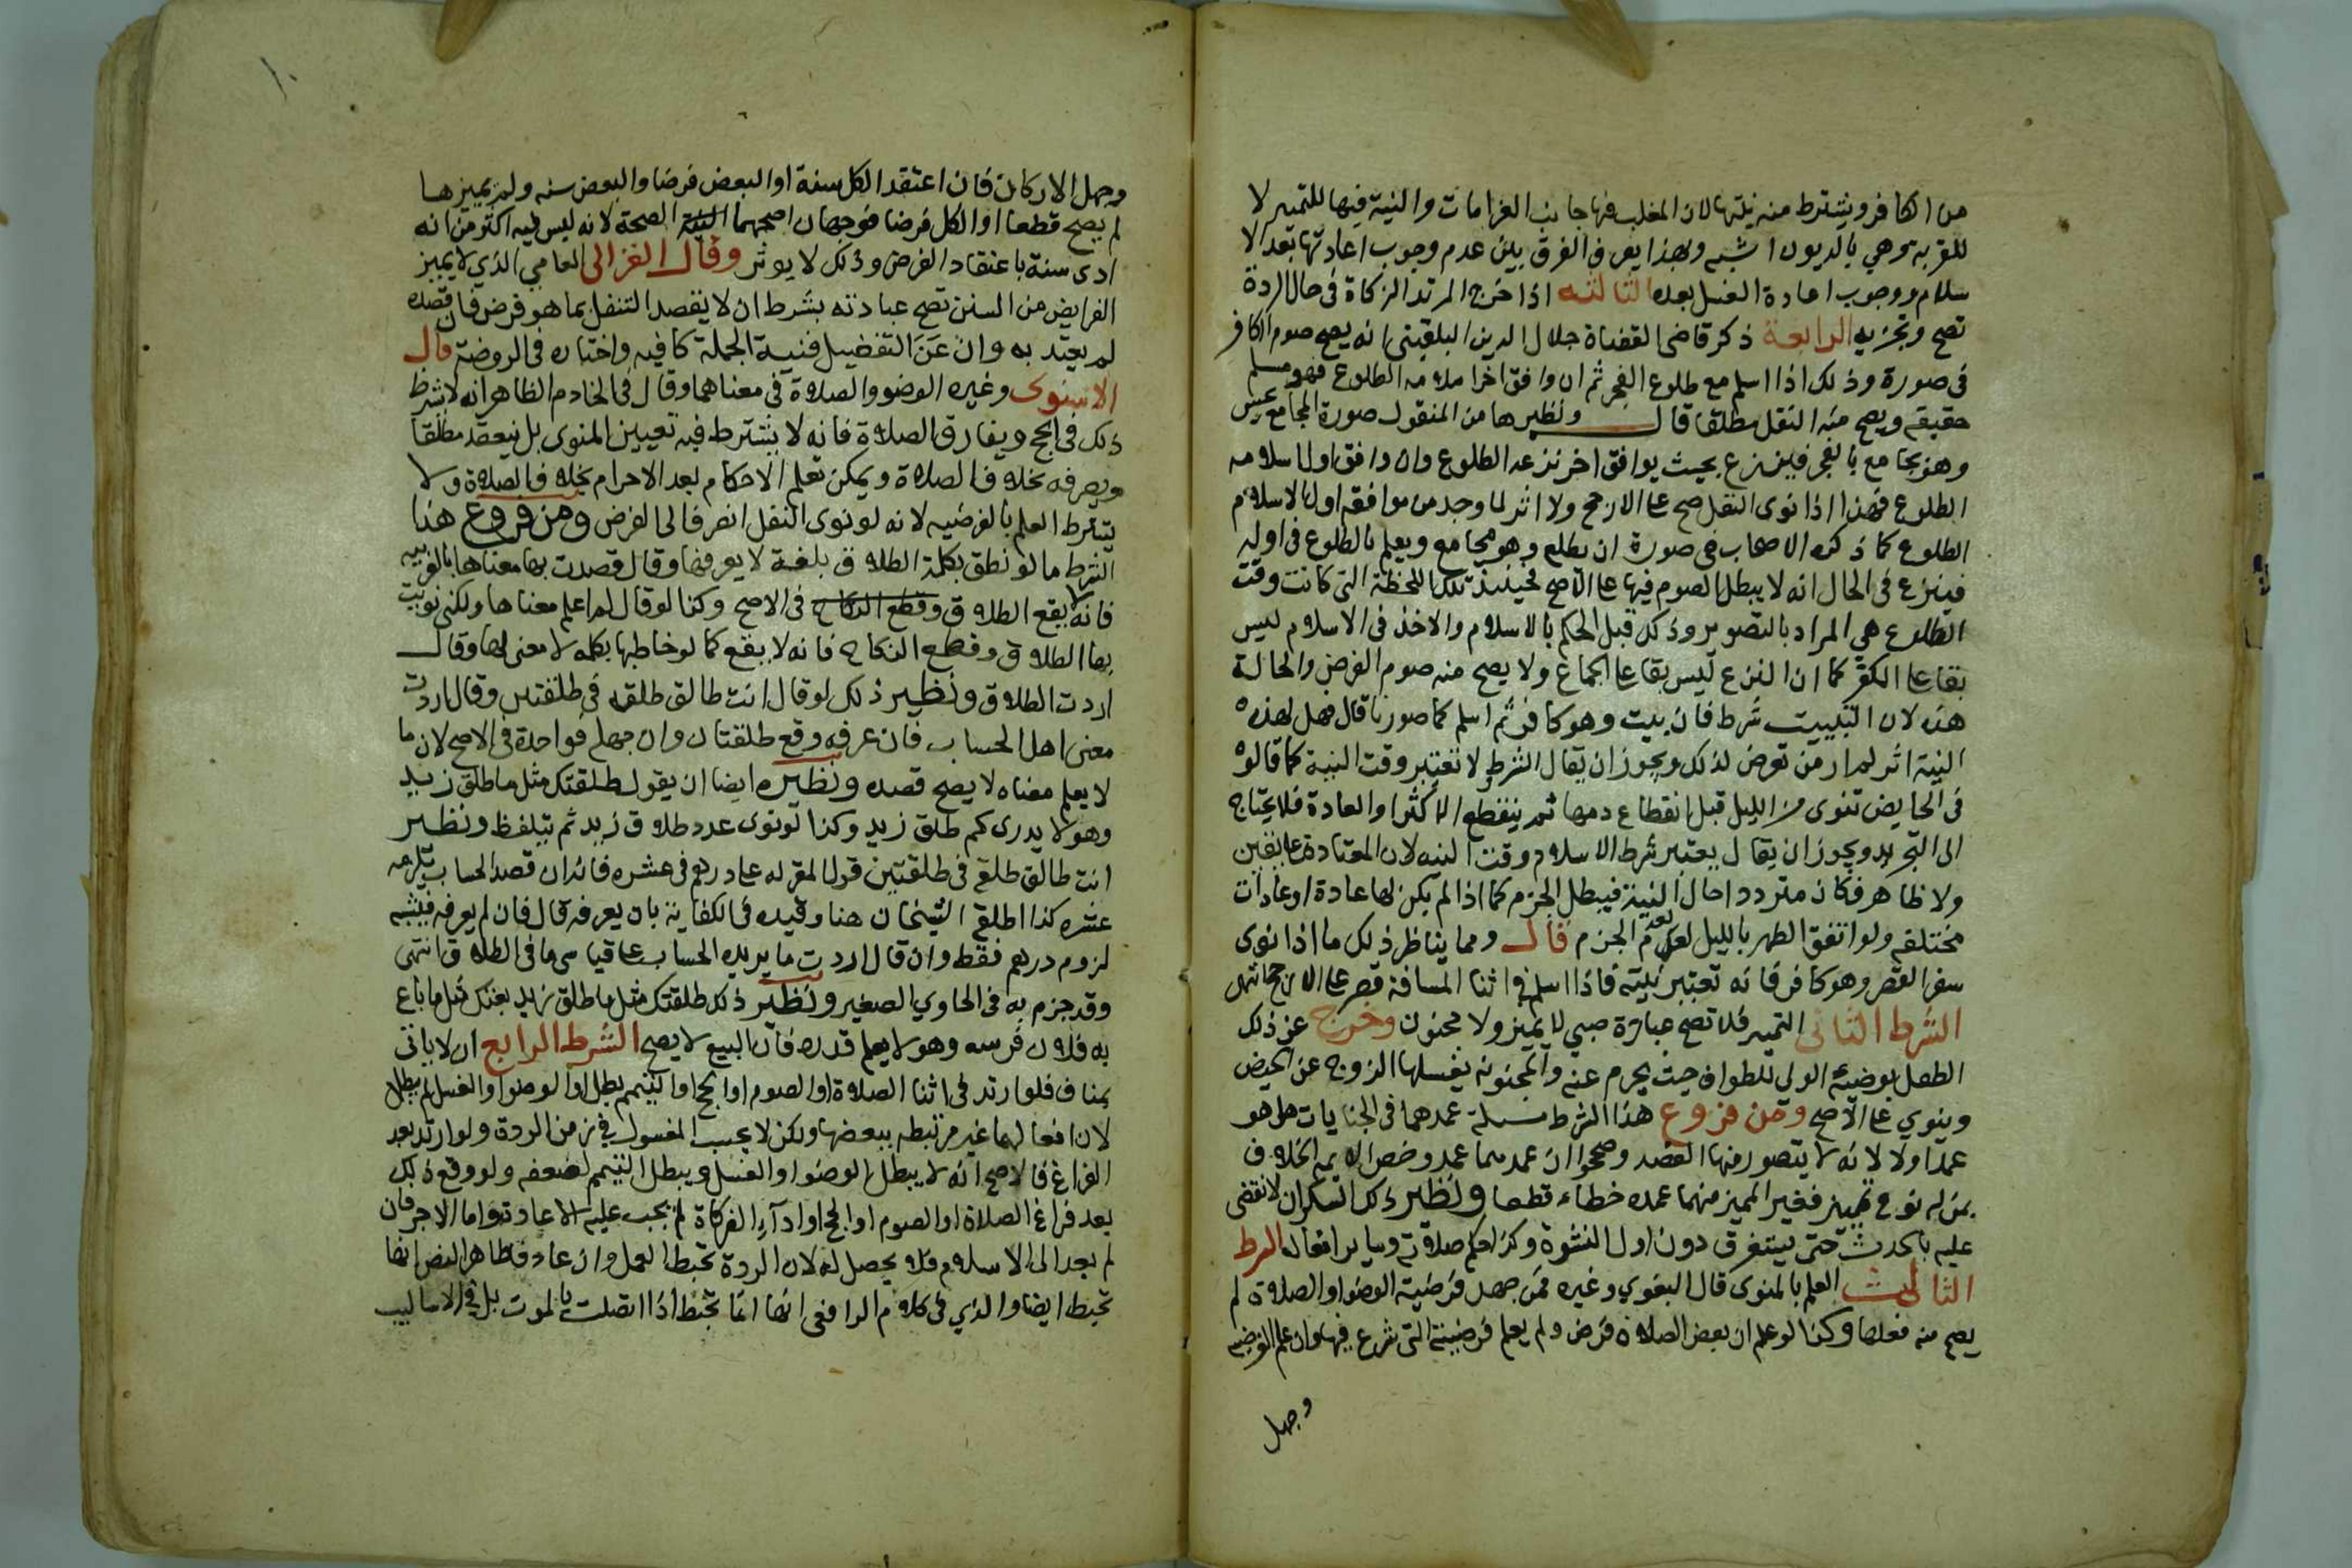 من الكافر ويشترط منه نيتها لان المغلب فيها جانب الغرامات والنية فيها للتمييز لا
للقربة وهي بالديون اشبه وبهذا يعرف الفرق بين عدم وجوب اعادتها بعد الا
سلام ووجوب اعادة الغسل بعده الثالثه اذا خرج المرتد الزكاة في حال الردة
تصح وتجزيه الرابعة ذكر قاضي القضاة جلال الدين البلقيني انه يصح صوم الكافر
في صورة وذلك اذا اسلم مع طلوع الفجر ثم ان وافق اخر اسلامه الطلوع فهو مسلم
حقيقة ويصح منه النفل مطلقا قال ونظيرها من المنقول صورة المجامع يحس
وهو يجامع بالفجر فينزع بحيث يوافق اخر نزعه الطلوع وان وافق اول اسلامه
الطلوع فهذا اذا نوى النفل صح علي الارجح ولا اثر لما وجد من موافقة اول الاسلام
الطلوع كما ذكره الاصحاب في صورة ان يطلع وهو مجامع ويعلم بالطلوع في اوله
فينزع في الحال انه لا يبطل الصوم فيها علي الاصح فحينئذ تلك اللحظة التي كانت وقت
الطلوع هي المراد بالتصوير وذلك قبل الحكم بالاسلام والاخذ في الاسلام ليس
بقا علي الكفر كما ان النزع ليس بقا علي الجماع ولا يصح منه صوم الفرض والحالة
هذه لان التبييت شرط فان بيت وهو كافر ثم اسلم كما صورنا قال فهل لهذه
النية اثر لم ار من تعرض لذلك ويجوز ان يقال الشرط لا تعتبر وقت النية كما قالوا
في الحايض تنوى من الليل قبل انقطاع دمها ثم ينقطع الاكثر او العادة فلا يحتاج
الى التجديد ويجوز ان يقال يعتبر شرط الاسلام وقت النيه لان المعتادة علي يقين
ولا ظاهر فكان مترددا حال النية فيبطل الجزم كما اذا لم يكن لها عادة او عادات
مختلفه ولو اتفق الطهر بالليل لعدم الجزم قال ومما يناظر ذلك ما اذا نوى
سفر القصر وهو كافر فانه تعتبر نيته فاذا اسلم في اثنا المسافة قصر علي الارجح انتهى
الشرط الثاني التمييز فلا تصح عبادة صبي لا يميز ولا مجنون وخرج عن ذلك
الطفل يوضيه الولي للطواف حيث يحرم عنه والمجنونه يغسلها الزوج عن الحيض
وينوي علي الاصح ومن فروع هذا الشرط مسيلة عمدهما في الجنايات هل هو
عمدا ولا لانه لا يتصور منها القصد وصححوا ان عمدهما عمد وخص الايمه الخلاف
بمن له نوع تمييز فغير المميز منهما عمده خطاء قطعا ونظير ذلك السكران لا نقضي
عليه بالحدث حتى يستغرق دون اول النشوة وكذا حكم صلاته وساير افعاله الشرط
الثالث العلم بالمنوى قال البغوي وغيره فمن جهل فرضية الوضوا والصلاة لم
يصح منه فعلها وكذا لو علم ان بعض الصلاة فرض ولم يعلم فرضيته التي شرع فيها وان علم الفرضيه
وجهل
١٠
وجهل الاركان فان اعتقد الكل سنة او البعض فرضا والبعض سنه ولم يميزها
لم يصح قطعا او الكل فرضا فوجهان اصحهما الصحة لانه ليس فيه اكثر من انه
ادى سنة باعتقاد الفرض وذلك لا يوثر وقال الغزالى العامي الذي لا يميز
الفرايض من السنن تصح عبادته بشرط ان لا يقصد التنفل بما هو فرض فان قصده
لم يعتد به وان عن التفصيل فنية الجملة كافيه واختاره في الروضة قال
الاسنوى وغيره الوضو والصلاة في معناهما وقال في الخادم الظاهر انه لا شرط
ذلك في الحج ويفارق الصلاة فانه لا يشترط فيه تعيين المنوى بل ينعقد مطلقا
ويصرفه بخلاف الصلاة ويمكن تعلم الاحكام بعد الاحرام بخلاف الصلاة ولا
يشترط العلم بالفرضيه لانه لو نوى النفل انصرف الى الفرض ومن فروع هذا
الشرط ما لو نطق بكلمة الطلاق بلغة لا يعرفها وقال قصدت بها معناها بالعربيه
فانه لا يقع الطلاق وقطع النكاح في الاصح وكذا لو قال لم اعلم معناها ولكني نويت
بها الطلاق وقطع النكاح فانه لا يقع كما لو خاطبها بكلمه لا معنى لها وقال
اردت الطلاق ونظير ذلك لو قال انت طالق طلقه في طلقتين وقال اردت
معنى اهل الحساب فان عرفه وقع طلقتان وان جهله فواحدة في الاصح لان ما
لا يعلم معناه لا يصح قصده ونظيره ايضا ان يقول طلقتك مثل ما طلق زيد
وهو لا يدرى كم طلق زيد وكذا لو نوى عدد طلاق زيد ثم يتلفظ ونظير
انت طالق طلقة في طلقتين قول المقر له علي درهم في عشره فانه ان قصد الحساب يلزمه
عشره كذا اطلقه الشيخان هنا وقيده في الكفاية بان يعرفه قال فان لم يعرفه فيشبه
لزوم درهم فقط وان قال اردت ما يريده الحساب علي قياس ما في الطلاق انتهى
وقد جزم به في الحاوي الصغير ونظير ذلك طلقتك مثل ما طلق زيد بعتك مثل ما باع
به فلان فرسه وهو لا يعلم قدره فان البيع لا يصح الشرط الرابع ان لا ياتى
بمناف فلو ارتد في اثنا الصلاة او الصوم او الحج او التيمم بطل او الوضوا والغسل لم يبطل
لان افعالهما غير مرتبطه ببعضها ولكن لا يحسب المغسول في زمن الردة ولو ارتد بعد
الفراغ فالاصح انه لا يبطل الوضوا والغسل ويبطل التيمم لضعفه ولو وقع ذلك
بعد فراغ الصلاة او الصوم او الحج او اداء الزكاة لم يجب عليه الاعادة واما الاجر فان
لم يعد الى الاسلام فلا يحصل له لان الردة تحبط العمل وان عاد فظاهر النص انها
تحبط ايضا والذي في كلام الرافعي انها انما تحبط اذا اتصلت بالموت بل في الاساليب